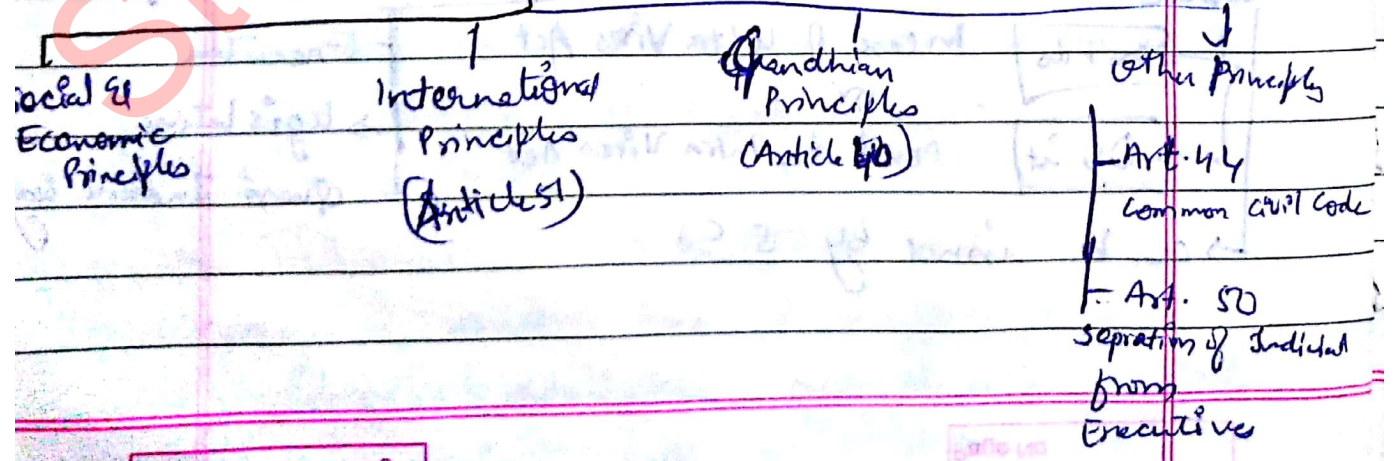 ocial &
Economic
Principles
International
Principles
(Article 51)
Ghandhian
Principles
(Article 40)
Other Principles
Art. 44
Common Civil Code
Art. 50
Sepration of Judicial
from
Executive